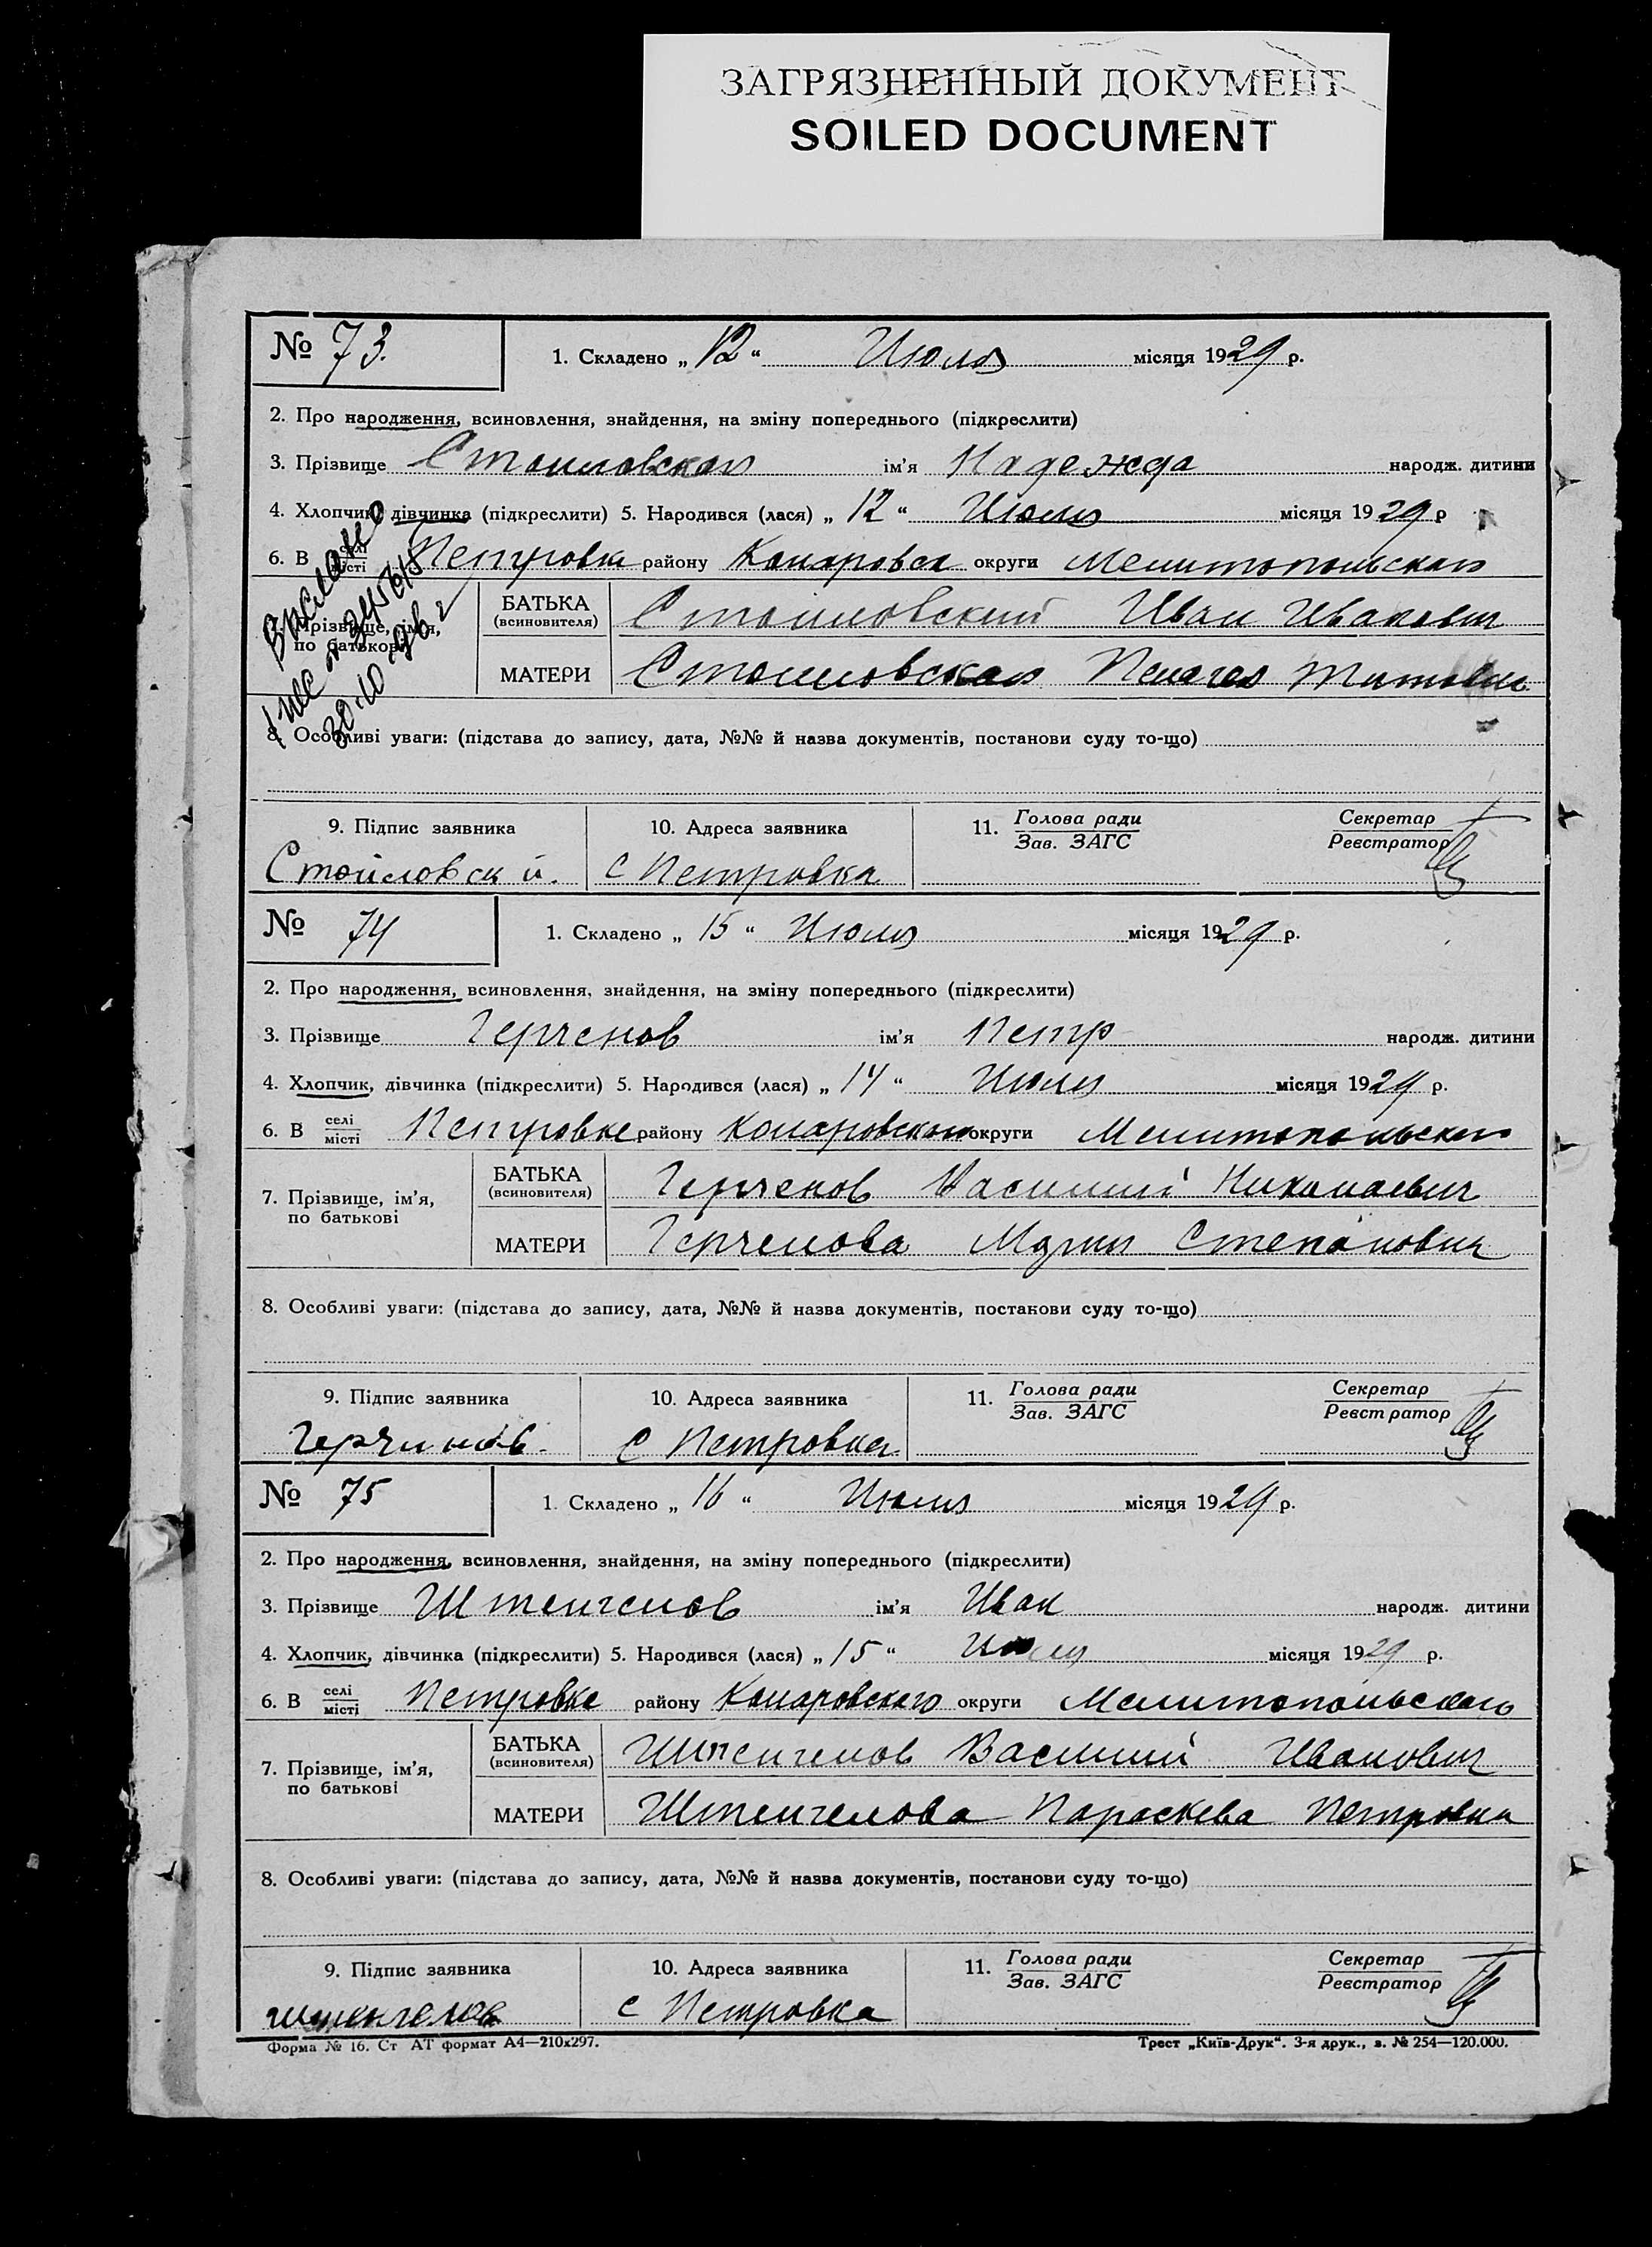 ЗАГРЯЗНЕННЫЙ ДОКУМЕНТ
SOILED DOCUMENT
№ 73. 1. Складено „ 12 “ Июля місяця 1929 р.
2. Про народження, всиновлення, знайдення, на зміну попереднього (підкреслити)
3. Прізвище Стоиловская ім’я Надежда народж. дитини
4. Хлопчик, дівчинка (підкреслити) 5. Народився (лася) „ 12 “ Июля місяця 1929 р
6. В селі місті Петровка району Комаровск округи Мелитопольского
Выслано
30.10
7. Прізвище, ім’я, по батькові
БАТЬКА (всиновителя) Стоиловский Иван Иванович
МАТЕРИ Стоиловская Пелагея Титовна
8. Особливі уваги: (підстава до запису, дата, №№ й назва документів, постанови суду то-що)
9. Підпис заявника 10. Адреса заявника 11. Голова ради Зав. ЗАГС Секретар Реєстратор
Стойловский. с Петровка
№ 74 1. Складено „ 15 “ Июля місяця 1929 р.
2. Про народження, всиновлення, знайдення, на зміну попереднього (підкреслити)
3. Прізвище Герченов ім’я Петр народж. дитини
4. Хлопчик, дівчинка (підкреслити) 5. Народився (лася) „ 14 “ Июля місяця 1929 р.
6. В селі місті Петровке району Комаровского округи Мелитопольского
7. Прізвище, ім’я, по батькові
БАТЬКА (всиновителя) Герченов Василий Николаевич
МАТЕРИ Герченова Мария Степановна
8. Особливі уваги: (підстава до запису, дата, №№ й назва документів, постанови суду то-що)
9. Підпис заявника 10. Адреса заявника 11. Голова ради Зав. ЗАГС Секретар Реєстратор
Герчинов. с Петровка
№ 75 1. Складено „ 16 “ Июля місяця 1929 р.
2. Про народження, всиновлення, знайдення, на зміну попереднього (підкреслити)
3. Прізвище Штенгелов ім’я Иван народж. дитини
4. Хлопчик, дівчинка (підкреслити) 5. Народився (лася) „ 15 “ Июля місяця 1929 р.
6. В селі місті Петровке району Комаровского округи Мелитопольского
7. Прізвище, ім’я, по батькові
БАТЬКА (всиновителя) Штенгелов Василий Иванович
МАТЕРИ Штенгелова Параскева Петровна
8. Особливі уваги: (підстава до запису, дата, №№ й назва документів, постанови суду то-що)
9. Підпис заявника 10. Адреса заявника 11. Голова ради Зав. ЗАГС Секретар Реєстратор
Штенгелов с Петровка
Форма № 16. Ст АТ формат А4—210х297. Трест „Київ-Друк“. 3-я друк., з. № 254—120.000.